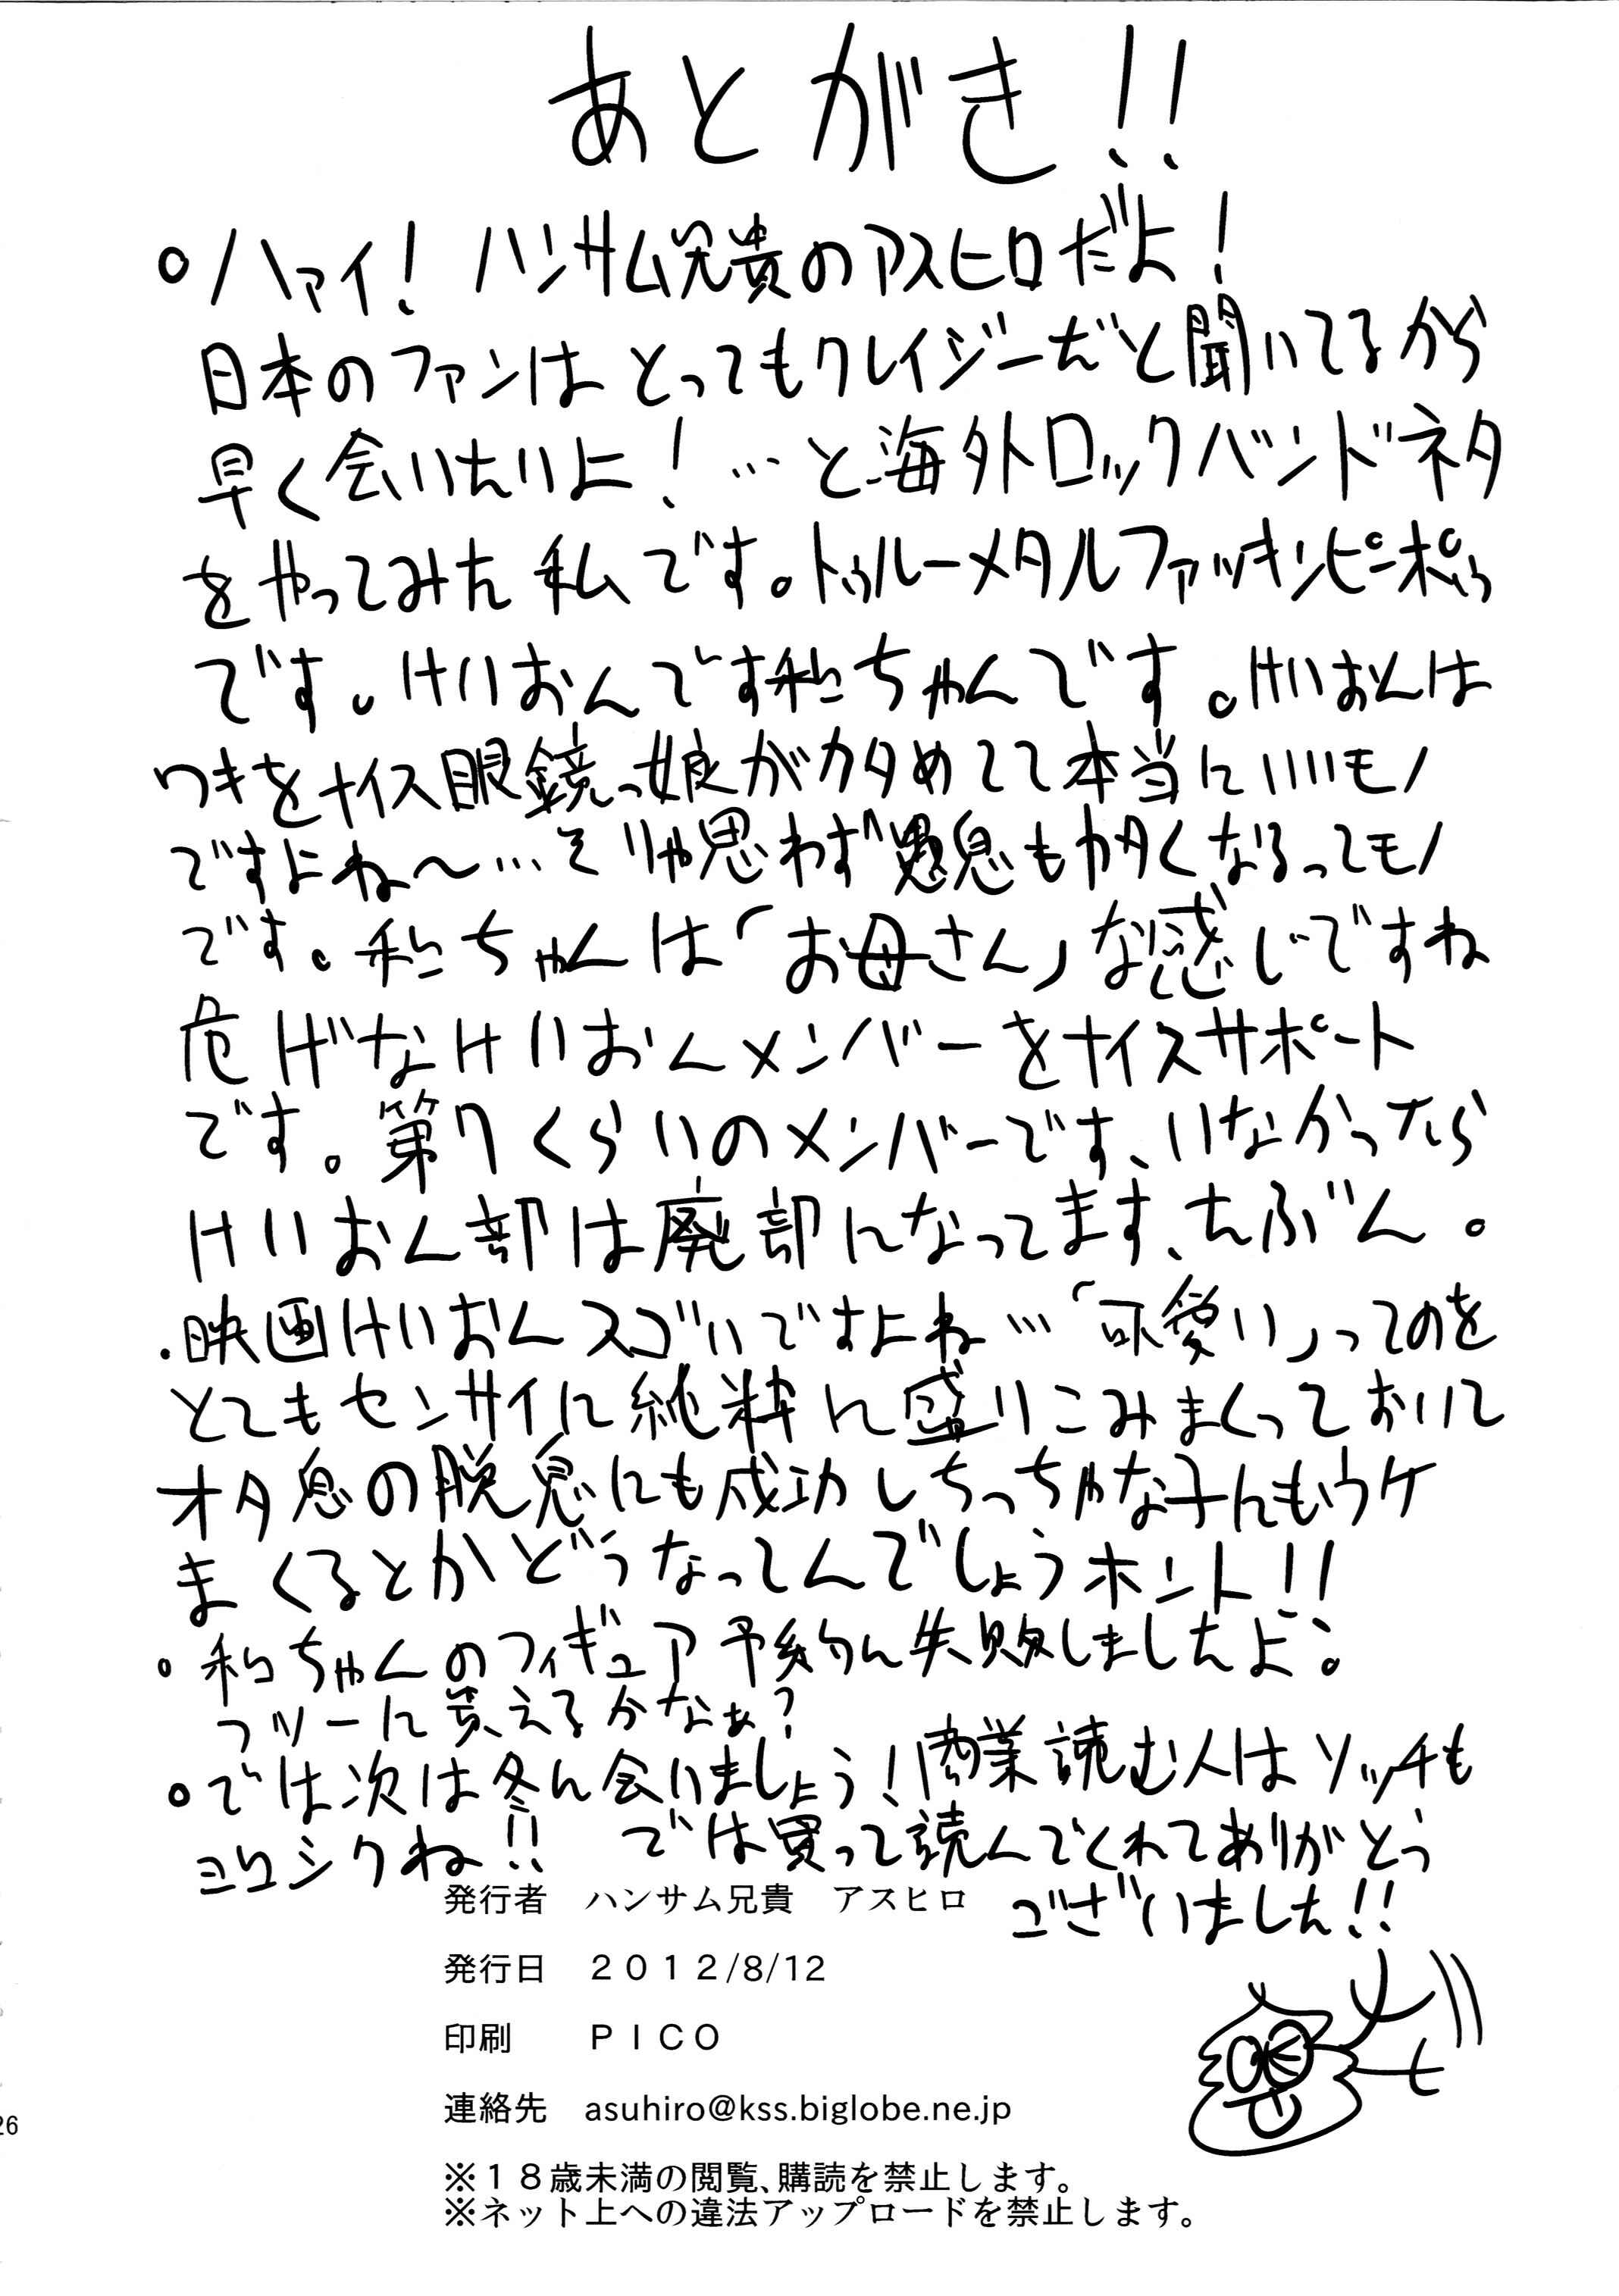 あとがき!!
○ハァイ!ハンサム兄貴のアスヒロだよ!
日本のファンはとってもクレイジーだと聞いてるから
早く会いたいよ!…と海外ロックバンドネタ
をやってみた私です。トゥルーメタルファッキンピーポゥ
です。けいおんです和ちゃんです。けいおんは
ワキをナイス眼鏡っ娘がカタめてて本当にいいモノ
ですよね〜…そりゃ思わず愚息もカタくなるってモノ
です。和ちゃんは「お母さん」な感じですね
危げなけいおんメンバーをナイスサポート
です。第7くらいのメンバーです、いなかったら
けいおん部は廃部になってます、たぶん。
・映画けいおんスゴいですよね…「可愛い」ってのを
とてもセンサイに純粋に盛りこみまくっておいて
オタ息の脱息にも成功しちっちゃな子にもウケ
まくるとかどうなってんでしょうホント!!
○和ちゃんのフィギュア予約に失敗しましたよ。
フツーに買えるかなぁ?
○では次は冬に会いましょう!商業読む人はソッチも
ヨロシクね!!では買って読んでくれてありがとう
ございました!!
発行者 ハンサム兄貴 アスヒロ
発行日 2012/8/12
印刷 PICO
連絡先 asuhiro@kss.biglobe.ne.jp
※18歳未満の閲覧、購読を禁止します。
※ネット上への違法アップロードを禁止します。
26